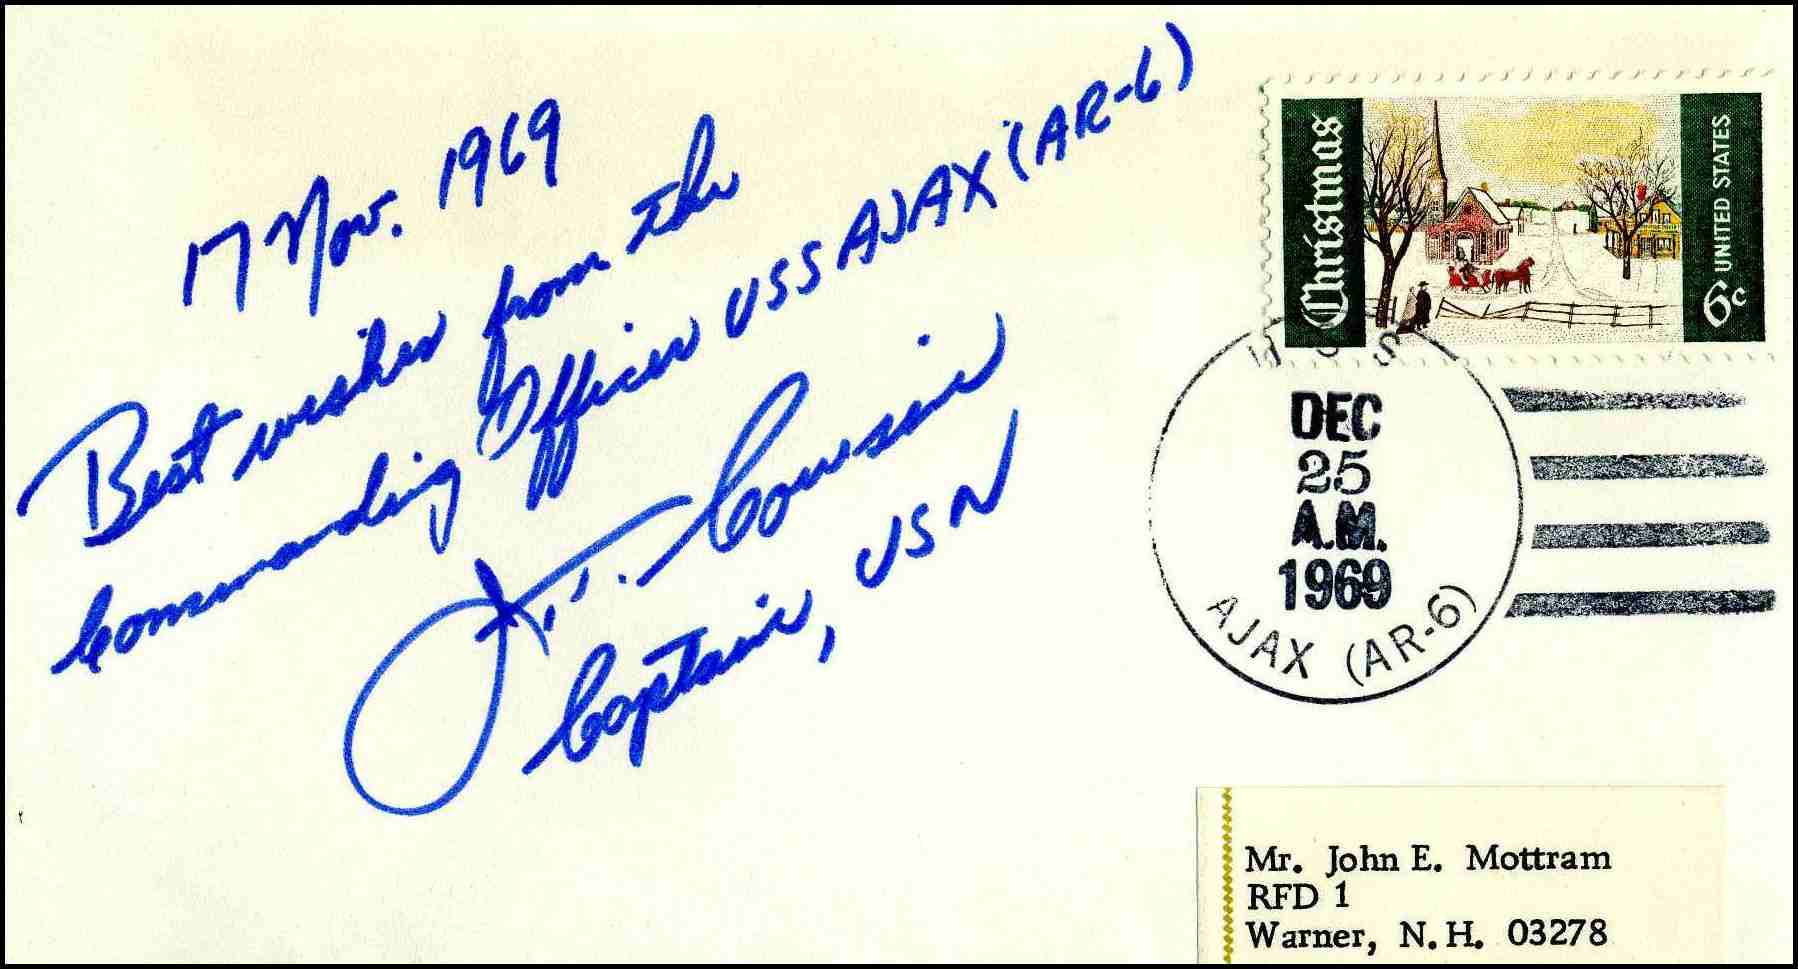 17 Nov. 1969
Best wishes from the
Commanding Officer USS AJAX (AR-6)
J. T.
Captain, USN
Christmas
UNITED STATES
6c
USS
DEC
25
A.M.
1969
AJAX (AR-6)
Mr. John E. Mottram
RFD 1
Warner, N.H. 03278